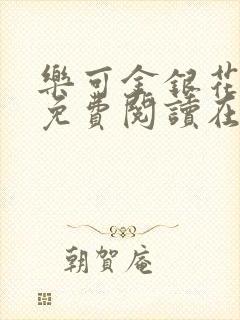 樂可金銀花
免費閱讀在
朝賀庵